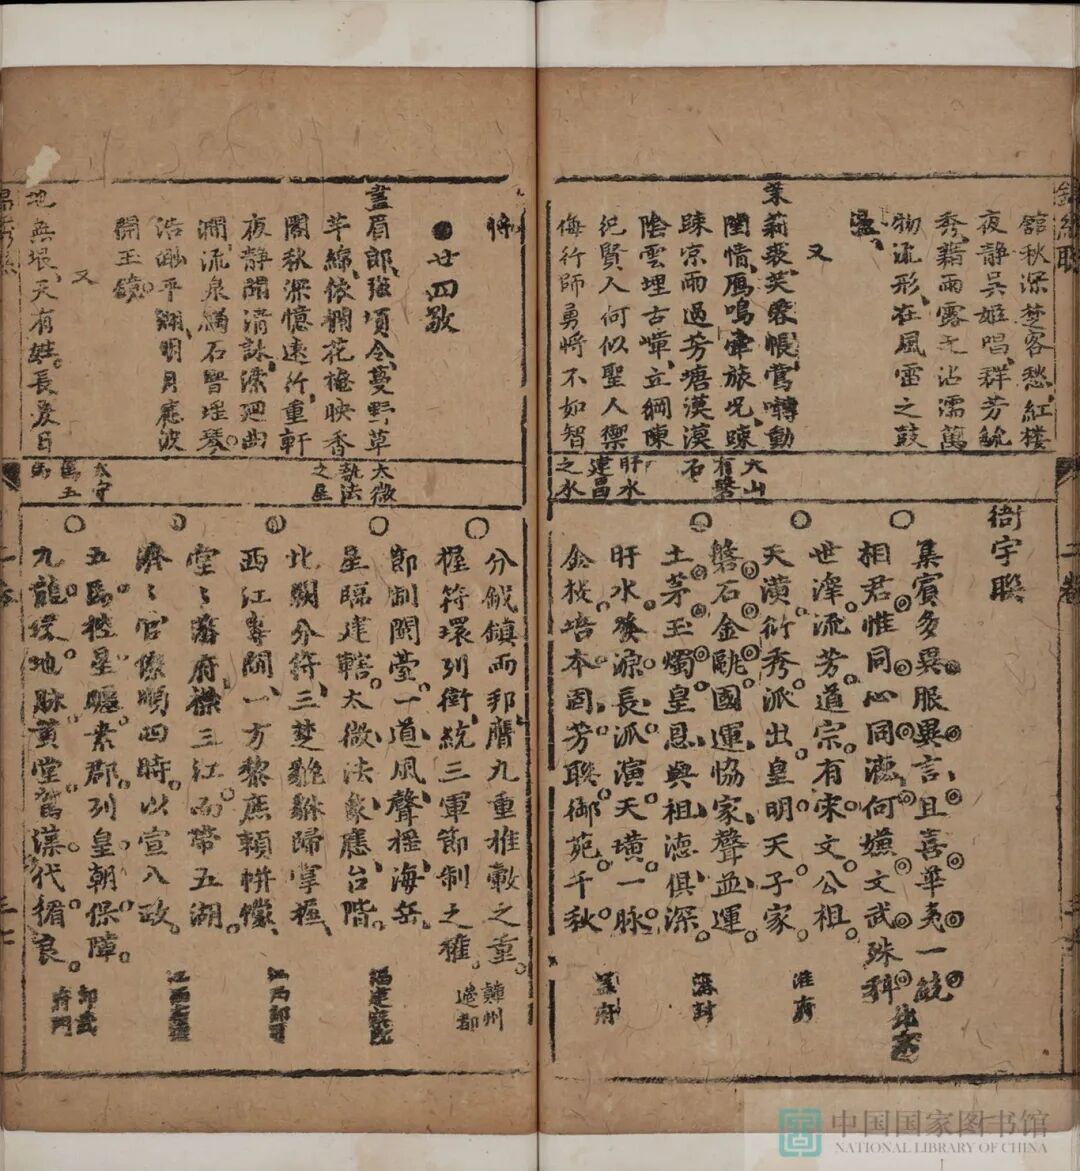 舘秋深楚客愁紅樓
夜靜吳姬唱群芳毓
秀藉雨露之沾濡萬
物流形在風雷之鼓
又
茉莉裘芙蓉帳鶯囀動
閨情鴈鳴牽旅況
疎凉雨過芳塘漠漠
陰雲埋古嶂立綱陳
紀賢人何似聖人禦
侮行師勇將不如智
大山
有磐
石
盱水
建昌
之水
衙宇聯
集賓多異服異言且喜華夷一統
相君惟同心同德何嫌文武殊科
世澤流芳道宗有宋文公祖
天潢衍秀派出皇明天子家
淮府
磐石金甌國運協家聲並運
土茅玉燭皇恩與祖德俱深
盱水發源長派演天璜一脉
金枝培本固芳聯御苑千秋
益府
將
廿四敬
畫眉郎強項令蔓野草
芊綿依欄花檻映香
閣秋深憶遠行重軒
夜靜聞清詠潺廻曲
澗流泉瀉石響瑤琴
浩渺平湖明月應波
開玉鏡
又
地無垠天有
長夏日
太微
執法
之星
太守
五
馬
分鉞鎮南邦膺九重推轂之重
握符環列衛統三軍節制之權
贛州
節制開臺一道風聲搖海岳
星臨建轄太微法象應台階
福建
北闕分符三楚貔貅歸掌握
西江專閫一方黎庶賴帡幪
堂堂藩府襟三江而帶五湖
濟濟官僚順四時以宣八政
江西
五馬控星曬素郡列皇朝保障
九龍環地脉黄堂舊漢代循良
邵武
府門
中国国家图书馆
NATIONAL LIBRARY OF CHINA